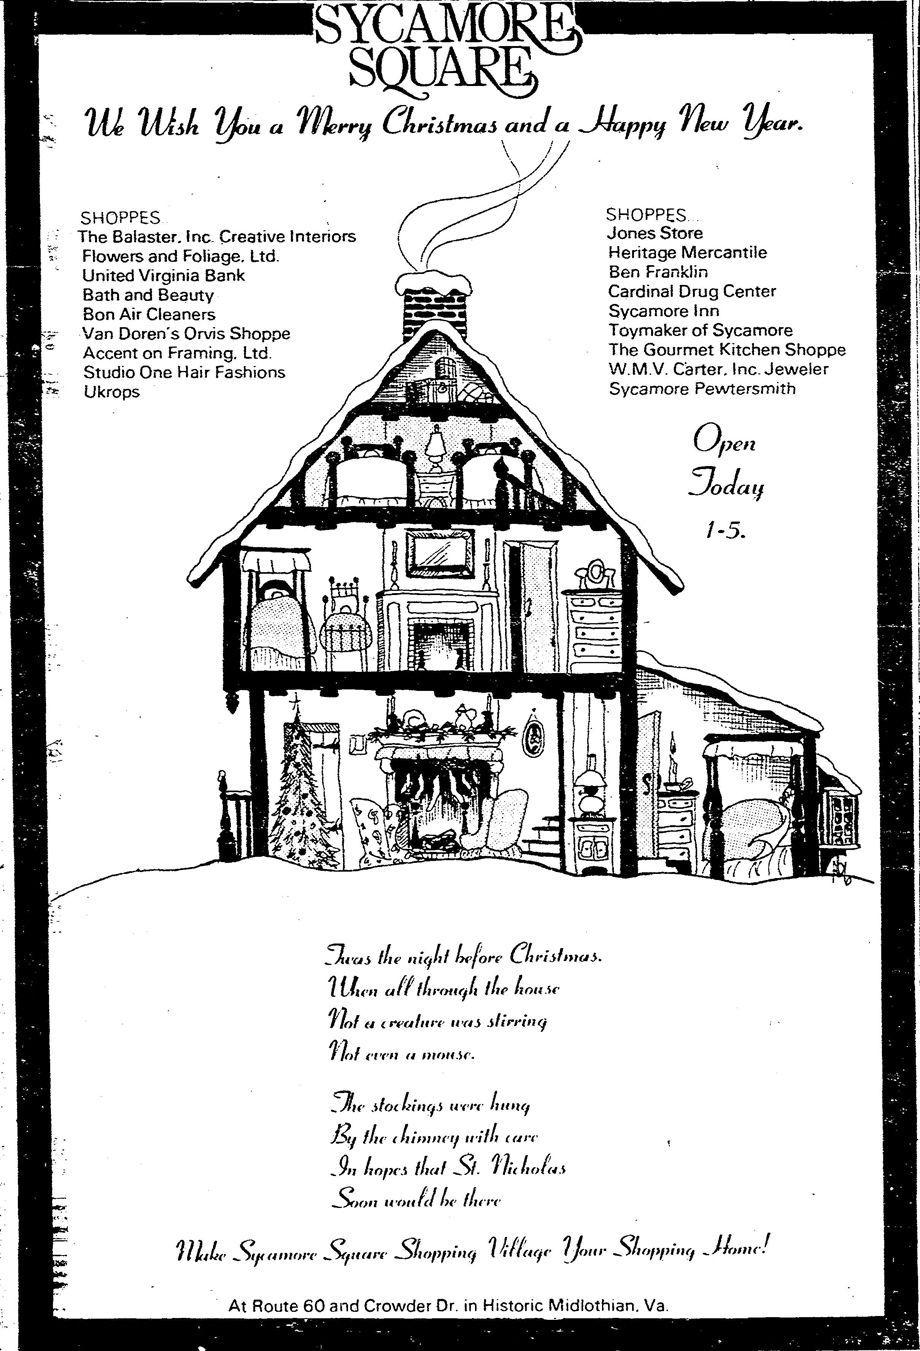 SYCAMORE
SQUARE
We Wish You a Merry Christmas and a Happy New Year.
SHOPPES
The Balaster, Inc. Creative Interiors
Flowers and Foliage, Ltd.
United Virginia Bank
Bath and Beauty
Bon Air Cleaners
Van Doren's Orvis Shoppe
Accent on Framing, Ltd.
Studio One Hair Fashions
Ukrops
SHOPPES
Jones Store
Heritage Mercantile
Ben Franklin
Cardinal Drug Center
Sycamore Inn
Toymaker of Sycamore
The Gourmet Kitchen Shoppe
W.M.V. Carter, Inc. Jeweler
Sycamore Pewtersmith
Open
Today
1-5.
'Twas the night before Christmas.
When all through the house
Not a creature was stirring
Not even a mouse.
The stockings were hung
By the chimney with care
In hopes that St. Nicholas
Soon would be there
Make Sycamore Square Shopping Village Your Shopping Home!
At Route 60 and Crowder Dr. in Historic Midlothian, Va.